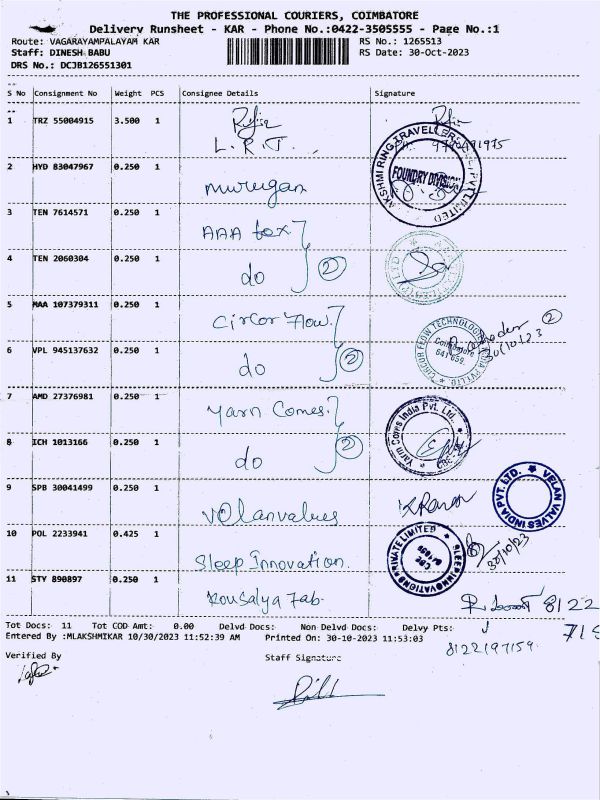 THE PROFESSIONAL COURIERS, COIMBATORE
Delivery Runsheet - KAR - Phone No.:0422-3505555 - Page No.:1
Route: VAGARAYAMPALAYAM KAR
RS No.: 1265513
Staff: DINESH BABU
RS Date: 30-Oct-2023
DRS No.: DCJB126551301
S No Consignment No Weight PCS Consignee Details Signature
1 TRZ 55004915 3.500 1
L.R.T.
2 HYD 83047967 0.250 1 murugan
FOUNDRY DIVISION
3 TEN 7614571 0.250 1 AAA tex
4 TEN 2060304 0.250 1 do 2
5 MAA 107379311 0.250 1 Circor Flow. 2
CIRCOR FLOW TECHNOLOGIES INDIA PVT LTD
Coimbatore 641 659.
30/10/23
6 VPL 945137632 0.250 1 do 2
7 AMD 27376981 0.250 1 Yarn Comes.
Yarn Coms India Pvt. Ltd.
8 ICH 1013166 0.250 1 do 2
9 SPB 30041499 0.250 1 velanvalues
VELAN VALVES INDIA PVT. LTD.
10 POL 2233941 0.425 1 Sleep Innovation.
SLEEP INNOVATIONS PRIVATE LIMITED
30/10/23
11 STY 890897 0.250 1 Kousalya Fab.
8122
Tot Docs: 11 Tot COD Amt: 0.00 Delvd Docs: Non Delvd Docs: Delvy Pts:
Entered By :MLAKSHMIKAR 10/30/2023 11:52:39 AM Printed On: 30-10-2023 11:53:03
8122197159
Verified By
Staff Signature